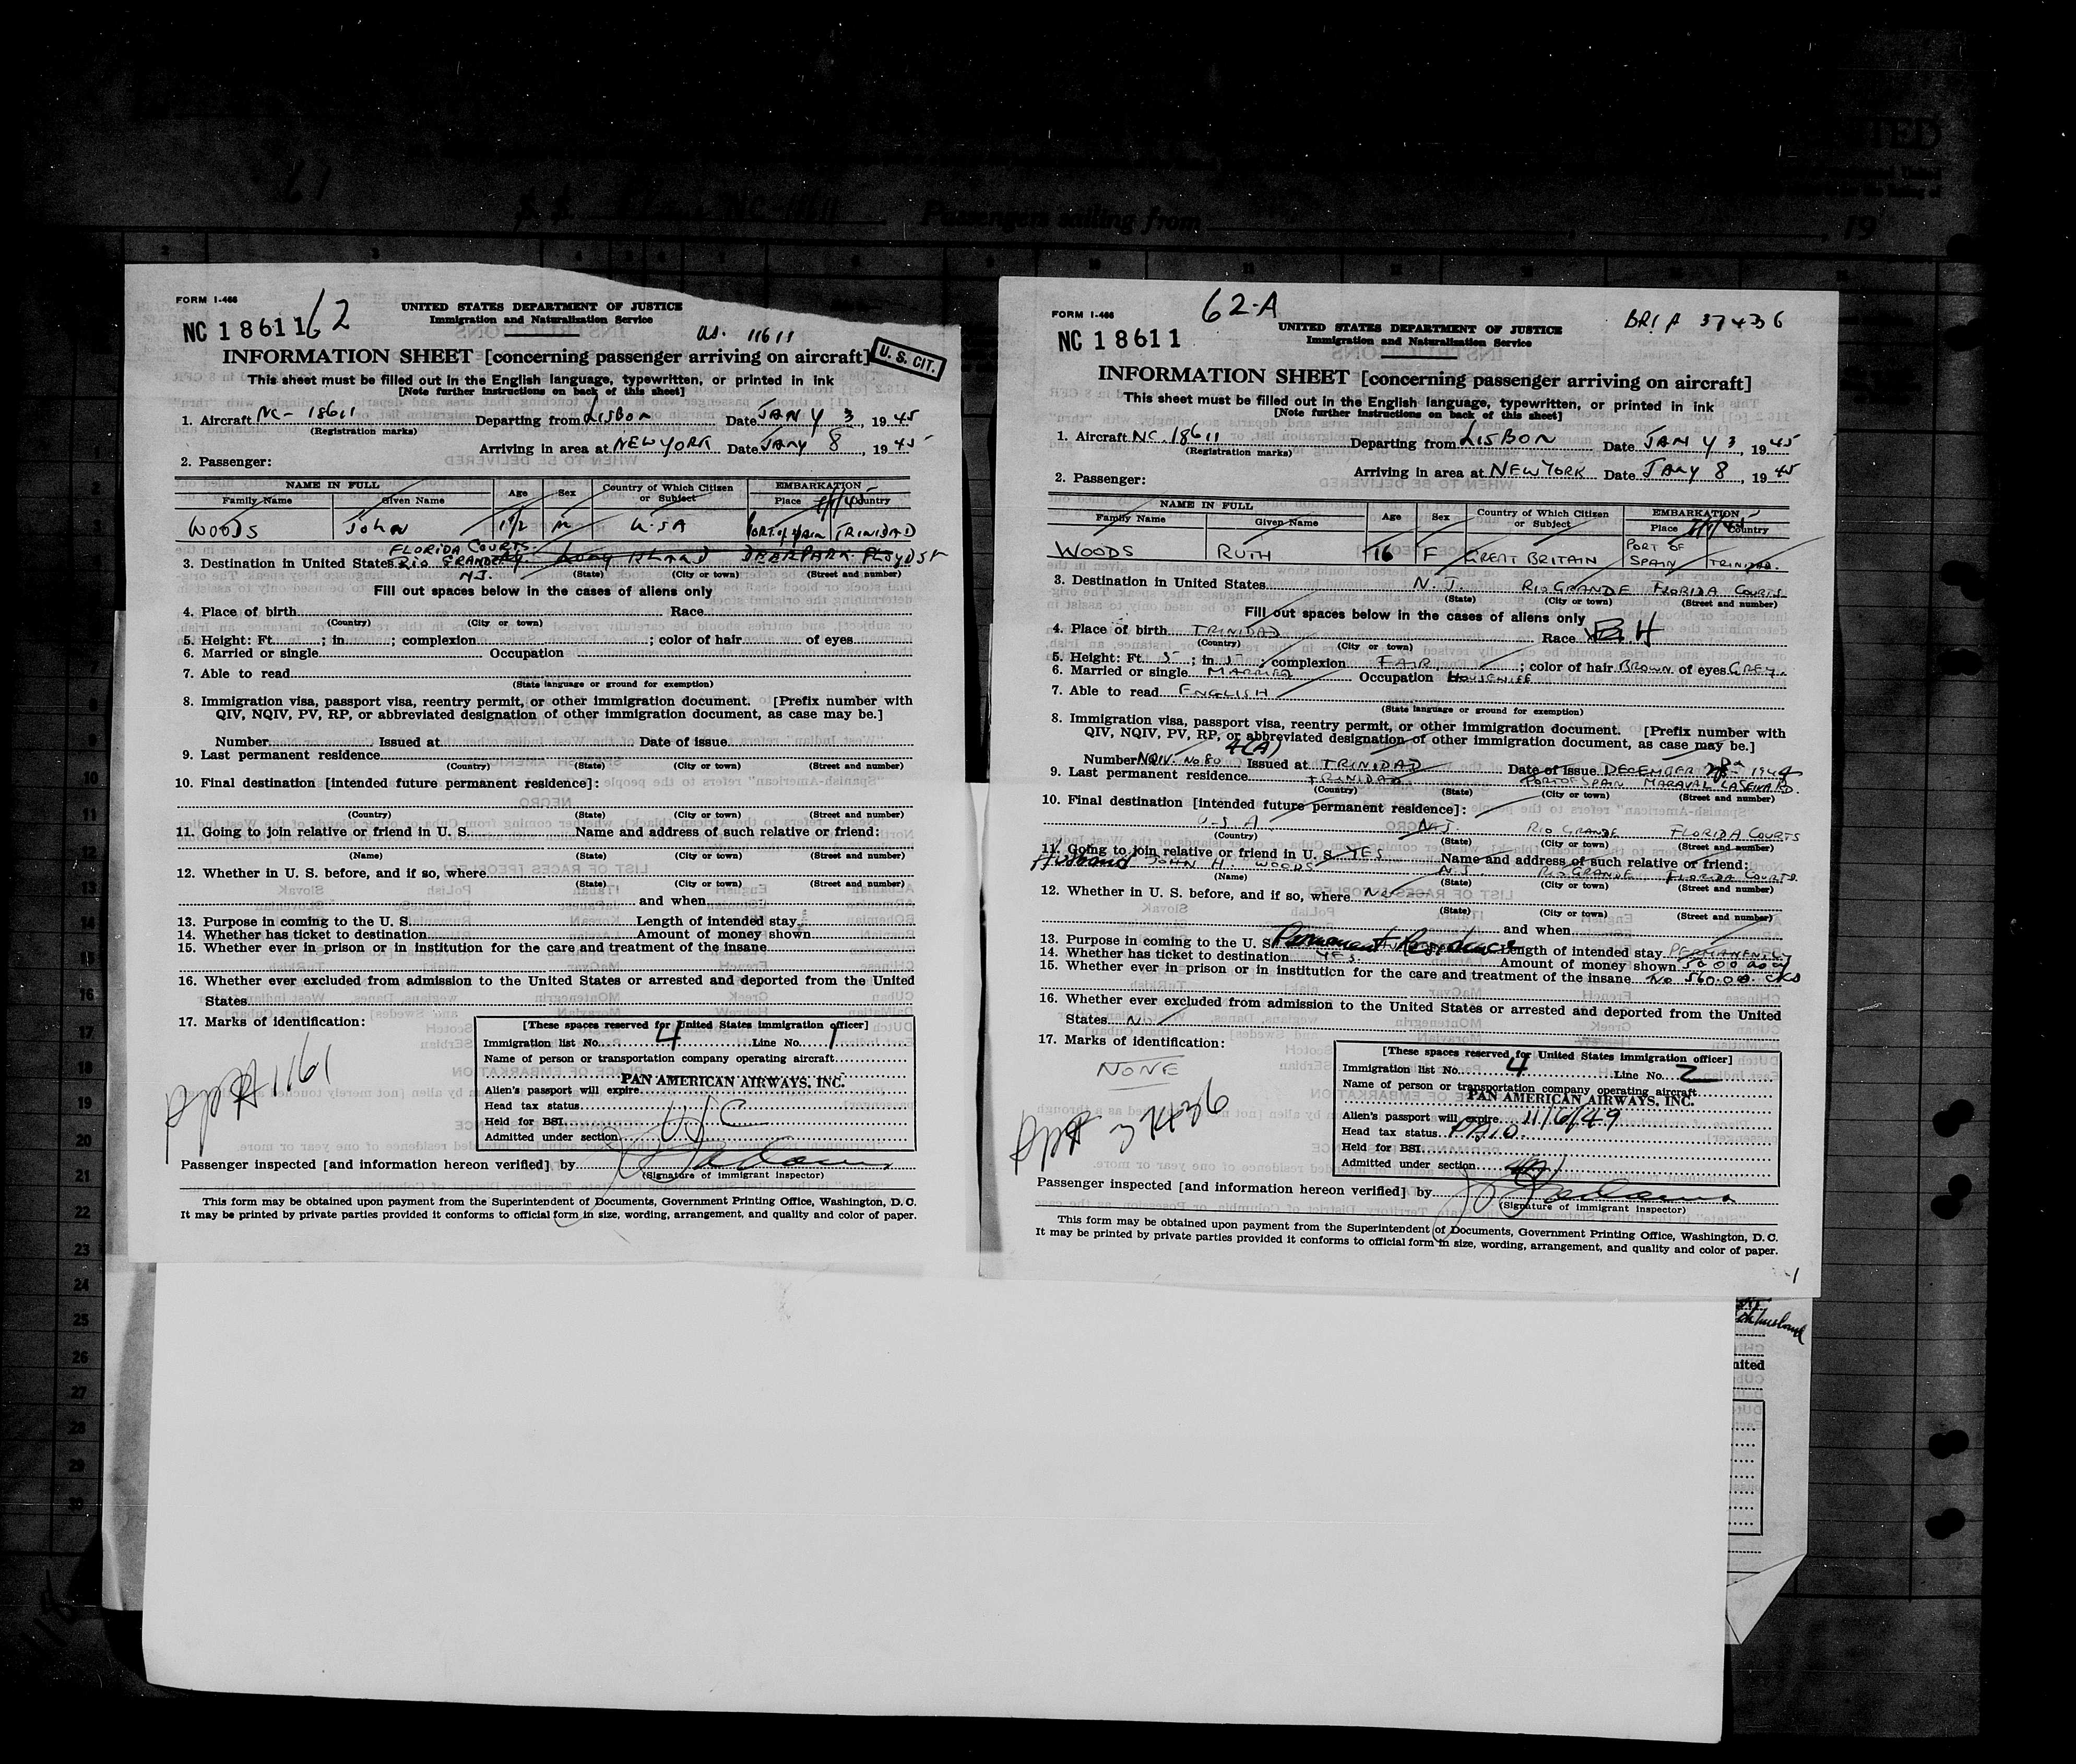 61
S. S. NC-18611 Passengers sailing from , 19
FORM I-466
NC 18611 62
UNITED STATES DEPARTMENT OF JUSTICE
Immigration and Naturalization Service
US. 11611
INFORMATION SHEET [concerning passenger arriving on aircraft]
U. S. CIT.
This sheet must be filled out in the English language, typewritten, or printed in ink
[Note further instructions on back of this sheet]
1. Aircraft NC- 18611 Departing from LISBON Date JANY 3, 1945
(Registration marks)
Arriving in area at NEW YORK Date JANY 8, 1945
2. Passenger:
NAME IN FULL Age Sex Country of Which Citizen or Subject EMBARKATION
Family Name Given Name Place Country
WOODS JOHN 1 1/2 M U.S.A PORT of SPAIN TRINIDAD
FLORIDA COURTS.
3. Destination in United States RIO GRANDE LONG ISLAND DEERPARK FLOYD ST
N.J. (State) (City or town) (Street and number)
Fill out spaces below in the cases of aliens only
4. Place of birth Race
(Country) (City or town)
5. Height: Ft. ; in. ; complexion ; color of hair of eyes
6. Married or single Occupation
7. Able to read
(State language or ground for exemption)
8. Immigration visa, passport visa, reentry permit, or other immigration document. [Prefix number with
QIV, NQIV, PV, RP, or abbreviated designation of other immigration document, as case may be.]
Number Issued at Date of issue
9. Last permanent residence
(Country) (State) (City or town) (Street and number)
10. Final destination [intended future permanent residence]:
(Country) (State) (City or town) (Street and number)
11. Going to join relative or friend in U. S. Name and address of such relative or friend:
(Name) (State) (City or town) (Street and number)
12. Whether in U. S. before, and if so, where
(State) (City or town) (Street and number)
and when
13. Purpose in coming to the U. S. Length of intended stay
14. Whether has ticket to destination Amount of money shown
15. Whether ever in prison or in institution for the care and treatment of the insane
16. Whether ever excluded from admission to the United States or arrested and deported from the United
States
17. Marks of identification:
[These spaces reserved for United States immigration officer]
Immigration list No. 4 Line No. 1
Name of person or transportation company operating aircraft
PAN AMERICAN AIRWAYS, INC.
Alien's passport will expire
Head tax status
Held for BSI
Admitted under section
1161
Passenger inspected [and information hereon verified] by
(Signature of immigrant inspector)
This form may be obtained upon payment from the Superintendent of Documents, Government Printing Office, Washington, D. C.
It may be printed by private parties provided it conforms to official form in size, wording, arrangement, and quality and color of paper.
FORM I-466
NC 18611
62-A
UNITED STATES DEPARTMENT OF JUSTICE
Immigration and Naturalization Service
BRI A 37436
INFORMATION SHEET [concerning passenger arriving on aircraft]
This sheet must be filled out in the English language, typewritten, or printed in ink
[Note further instructions on back of this sheet]
1. Aircraft NC-18611 Departing from LISBON Date JANY 3, 1945
(Registration marks)
Arriving in area at NEW YORK Date JANY 8, 1945
2. Passenger:
NAME IN FULL Age Sex Country of Which Citizen or Subject EMBARKATION
Family Name Given Name Place Country
WOODS RUTH 16 F GREAT BRITAIN PORT OF SPAIN TRINIDAD.
3. Destination in United States N.J. RIO GRANDE FLORIDA COURTS
(State) (City or town) (Street and number)
Fill out spaces below in the cases of aliens only
4. Place of birth TRINIDAD Race
(Country) (City or town)
5. Height: Ft. 5 ; in. 5 ; complexion FAIR ; color of hair BROWN of eyes GREY.
6. Married or single MARRIED Occupation HOUSEWIFE
7. Able to read ENGLISH
(State language or ground for exemption)
8. Immigration visa, passport visa, reentry permit, or other immigration document. [Prefix number with
QIV, NQIV, PV, RP, or abbreviated designation of other immigration document, as case may be.]
4(A)
Number NQIV. No 80 Issued at TRINIDAD Date of issue DECEMBER 1944
9. Last permanent residence TRINIDAD PORT OF SPAIN MARAVAL RD.
(Country) (State) (City or town) (Street and number)
10. Final destination [intended future permanent residence]:
U.S.A. N.J. RIO GRANDE FLORIDA COURTS
(Country) (State) (City or town) (Street and number)
11. Going to join relative or friend in U. S. YES Name and address of such relative or friend:
Husband JOHN H. WOODS N.J. RIO GRANDE FLORIDA COURTS.
(Name) (State) (City or town) (Street and number)
12. Whether in U. S. before, and if so, where NO
(State) (City or town) (Street and number)
and when
13. Purpose in coming to the U. S. Permanent Residence Length of intended stay PERMANENTLY
14. Whether has ticket to destination YES. Amount of money shown
15. Whether ever in prison or in institution for the care and treatment of the insane No 560.00 CKS
16. Whether ever excluded from admission to the United States or arrested and deported from the United
States No
17. Marks of identification:
NONE
[These spaces reserved for United States immigration officer]
Immigration list No. 4 Line No. 2
Name of person or transportation company operating aircraft
PAN AMERICAN AIRWAYS, INC.
Alien's passport will expire 11/6/49
Head tax status PAID.
Held for BSI
Admitted under section
37436
Passenger inspected [and information hereon verified] by
(Signature of immigrant inspector)
This form may be obtained upon payment from the Superintendent of Documents, Government Printing Office, Washington, D. C.
It may be printed by private parties provided it conforms to official form in size, wording, arrangement, and quality and color of paper.